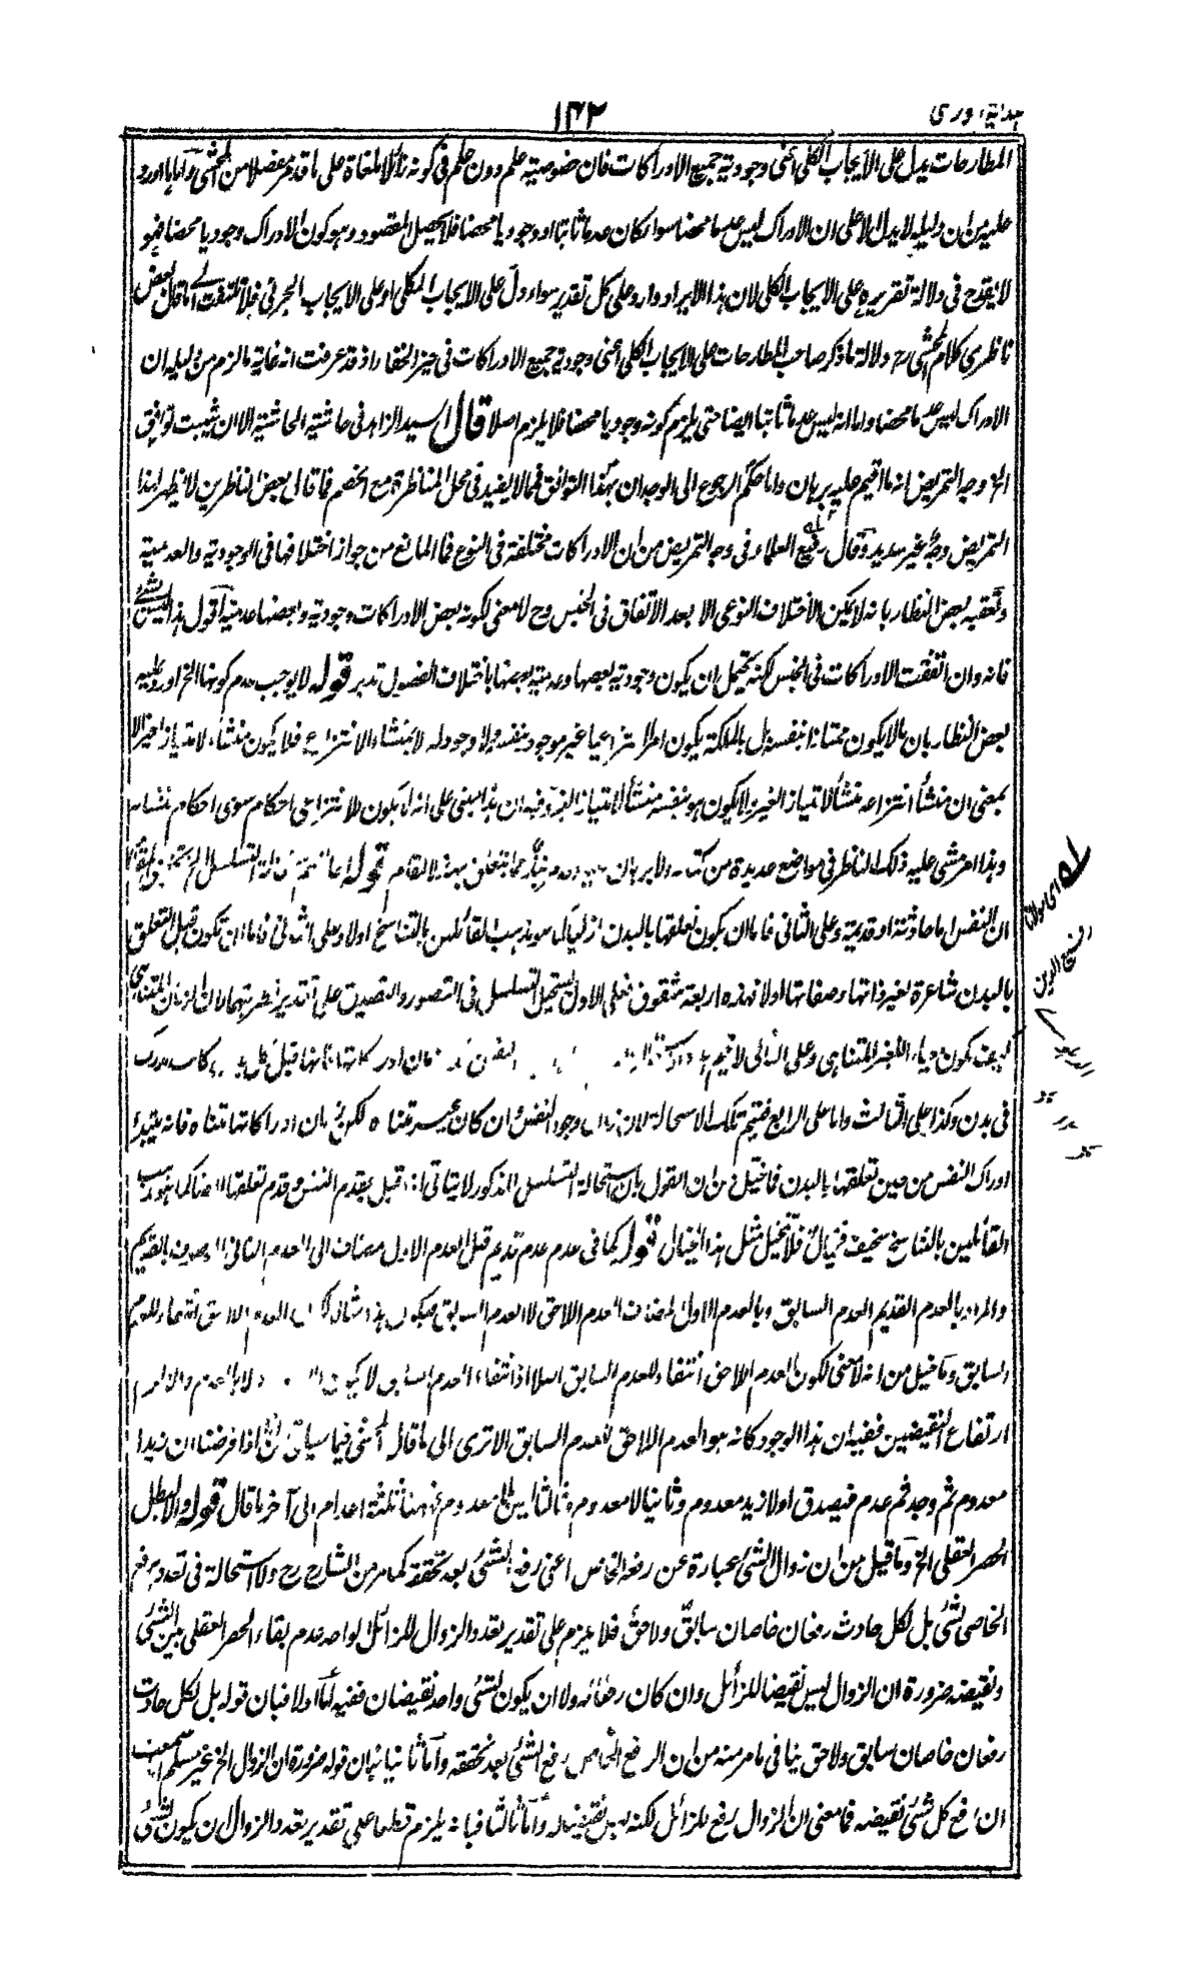 ۱۴۲
المطارحات يدل على الايجاب الكلى اعنى وجودية جميع الادراكات فان خصوصية علم دون علم فى كونه زائلا ملغاة على ما قدمر مفصلا من المحشى واما ما اورد
عليه من ان دليله لا يدل الا على ان الادراك ليس عدما محضا سوا كان عدما ثابتا او وجوديا محضا فلا يحصل المقصود وهو كون الادراك وجوديا محضا فهو
لا يقدح فى دلالة تقريره على الايجاب الكلى لان هذا الايراد وارد على كل تقدير سواء دل على الايجاب الكلى او على الايجاب الجزئى فلا تلتفت الى ما قال بعض
ناظرى كلام المحشى رح دلالة ما ذكر صاحب المطارحات على الايجاب الكلى اعنى وجودية جميع الادراكات فى حيز الخفاء اذ قد عرفت انه غاية ما لزم من دليله ان
الادراك ليس عدما محضا واما انه ليس عدما ثابتا ايضا حتى يلزم كونه وجوديا محضا فلا يلزم اصلا قال السيد الزاهد فى حاشية الحاشية الا ان يثبت توافق
الخ وجه التمريض انه ما اقيم عليه برهان واما حكم الرجوع الى الوجدان بهذا التوافق فمما لا يفيد فى محل المناظرة مع الخصم فما قال بعض الناظرين لا يظهر لهذا
التمريض وجه غير سديد وقال رفيع العلماء فى وجه التمريض من ان الادراكات مختلفة فى النوع فما المانع من جواز اختلافها فى الوجودية والعدمية
وتعقبه بعض النظار بانه لا يمكن الاختلاف النوعى الا بعد الاتفاق فى الجنس وح لا معنى لكونه بعض الادراكات وجودية وبعضها عدمية اقول هذا ليس بشئ
فانه وان اتفقت الادراكات فى الجنس لكنه يحتمل ان يكون وجودية بعضها وعدمية بعضها باختلاف الفصول تدبر قوله لا يوجب عدم كونها الخ اورد عليه
بعض النظار بان ما لا يكون ممتازا بنفسه بل بالملكة يكون امرا انتزاعيا غير موجود بنفسه ولا وجود له الا بمنشاء الانتزاع فلا يكون منشاء لامتياز اخر الا
بمعنى ان منشأ انتزاعه منشأ لامتياز الغير لا يكون هو بنفسه منشأ لامتياز الغير وفيه ان هذا مبنى على انه لا يكون للانتزاعى احكام سوى احكام منشائه
وهذا امر مشى عليه ذلك الناظر فى مواضع عديدة من كتبه ولا برهان مما يتعلق بهذا المقام قوله
ان النفس اما حادثة او قديمة وعلى الثانى فاما ان يكون تعلقها بالبدن ازليا كما هو مذهب القائلين بالتناسخ اولا وعلى الثانى فاما ان تكون قبل التعلق
بالبدن شاعرة لغير ذاتها وصفاتها اولا فهذه اربعة شقوق فعلى الاول يستحيل التسلسل فى التصور والتصديق على تقدير
فى بدن وكذا على الثالث واما على الرابع فتيم تلك الاستحالة لان زمان وجود النفس وان كان غير متناه لكن زمان ادراكاتها متناه فانه يبتدئ
ادراك النفس من حين تعلقها بالبدن فما قيل من ان القول بان استحالة التسلسل المذكور لا يتاتى اذا قيل بقدم النفس وقدم تعلقها ايضا كما هو مذهب
القائلين بالتناسخ سخيف فتخيال فلا تخيل مثل هذا الخيال قوله كما فى عدم عدم قديم قبل العدم الاول مضاف الى العدم الثانى الموصوف بالقديم
والمراد بالعدم القديم العدم السابق وبالعدم الاول المضاف العدم اللاحق لا العدم السابق فيكون هذا مثالا لكون العدم اللاحق انتفاء للعدم
السابق وما قيل من انه لا معنى لكون العدم اللاحق انتفاء للعدم السابق اصلا اذ انتفاء العدم السابق لا يكون
ارتفاع النقيضين ففيه ان هذا الوجود كانه هو العدم اللاحق للعدم السابق الا ترى الى ما قال المحشى فيما سياتى انا اذا فرضنا ان زيدا
معدوم ثم وجد ثم عدم فيصدق اولا زيد معدوم وثانيا لا معدوم وثالثا ليس بلا معدوم فههنا ثلثة اعدام الى آخر ما قال قوله والا لبطل
الحصر العقلى الخ وما قيل من ان زوال الشئ عبارة عن رفعه الخاص اعنى رفع الشئ بعد تحققه كما مر من الشارح رح ولا استحالة فى تعدد رفع
الخاص لشئ بل لكل حادث رفعان خاصان سابق ولاحق فلا يلزم على تقدير تعدد الزوال للزائل الواحد عدم بقاء الحصر العقلى بين الشئ
ونقيضه ضرورة ان الزوال ليس نقيضا للزائل وان كان رفعا له ولا ان يكون لشئ واحد نقيضان ففيه اما اولا فبان قوله بل لكل حادث
رفعان خاصان سابق ولاحق ينافى ما مر منه من ان الرفع الخاص رفع الشئ بعد تحققه واما ثانيا فبان قوله ضرورة ان الزوال الخ غير مسلم
ان رفع كل شئ نقيضه فما معنى ان الزوال رفع للزائل لكنه ليس نقيضا له واما ثالثا فبانه يلزم قطعا على تقدير تعدد الزوال ان يكون لشئ
اى مولانا
رفيع الدين